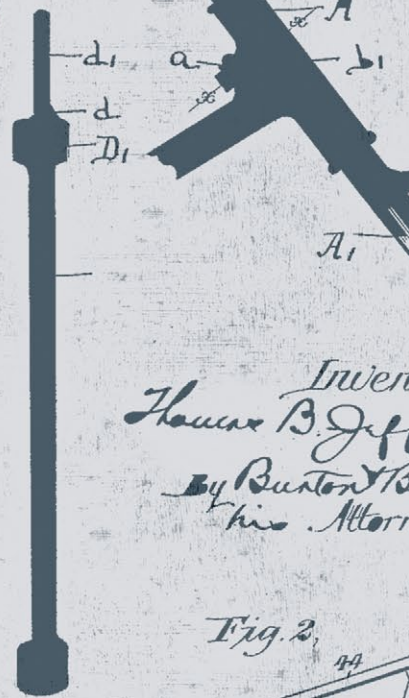 A
d₁
a
b₁
x
x
d
D₁
A₁
Inven
Thomas B. Jeff
By Burton & B
his Attorn
Fig. 2,
44